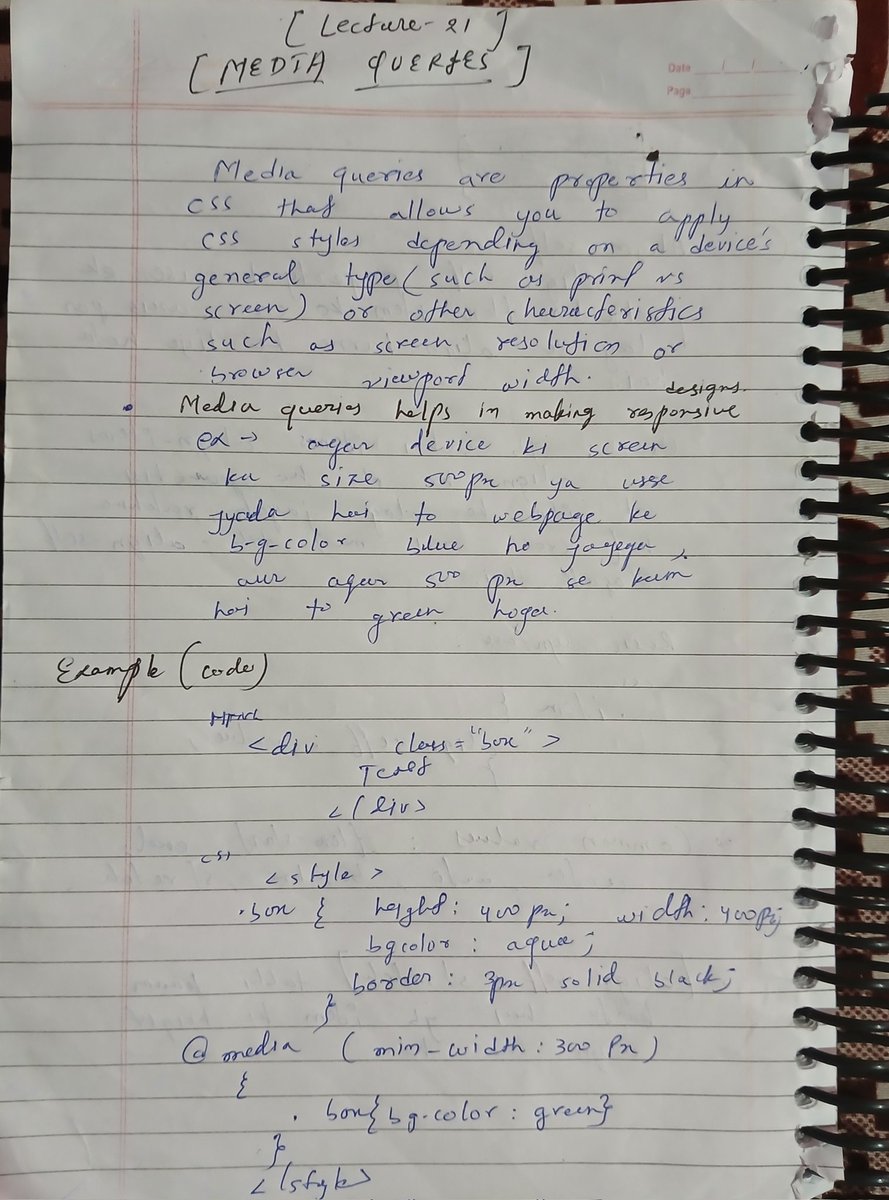 [ Lecture-21 ]
[ MEDIA QUERIES ]
Date / /
Page
Media queries are properties in
CSS that allows you to apply
CSS styles depending on a device's
general type (such as print vs
screen) or other characteristics
such as screen resolution or
browser viewport width.
• Media queries helps in making responsive designs.
ex → agar device ki screen
ka size 500px ya usse
jyada hai to webpage ke
b-g-color blue ho jayega,
aur agar 500 px se kam
hai to green hoga.
Example (code)
<div class="box">
Text
</div>
css
<style>
.box { height: 400px; width: 400px;
bgcolor: aqua;
border: 3px solid black;
}
@media (min-width: 300px)
{
. box{bg-color: green}
}
</style>